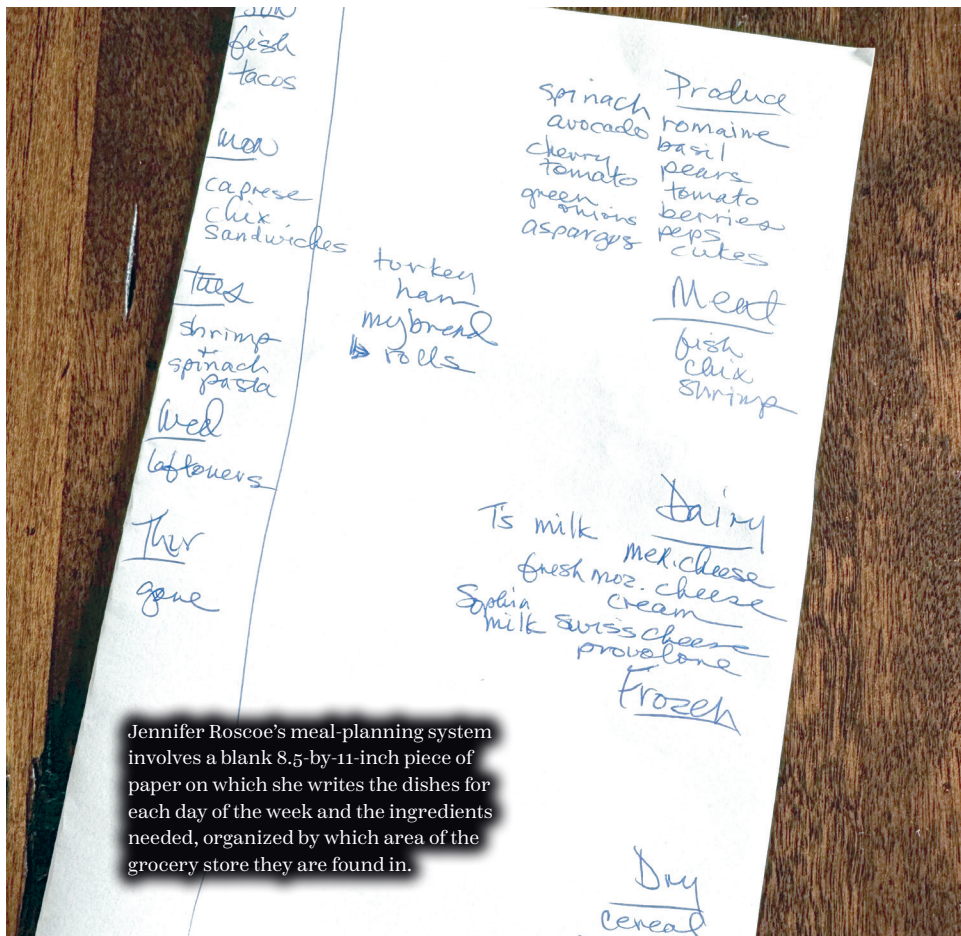 sun
fish
tacos
mon
caprese
chix
sandwiches
tues
shrimp
+
spinach
pasta
Wed
leftovers
Thur
gone
turkey
ham
my bread
rolls
Produce
spinach romaine
avocado basil
cherry pears
tomato tomato
green berries
onions peps
aspargus cukes
Meat
fish
chix
shrimp
Dairy
T's milk mex. cheese
fresh moz. cheese
Sophia cream
milk swiss cheese
provolone
Frozen
Dry
cereal
Jennifer Roscoe’s meal-planning system
involves a blank 8.5-by-11-inch piece of
paper on which she writes the dishes for
each day of the week and the ingredients
needed, organized by which area of the
grocery store they are found in.